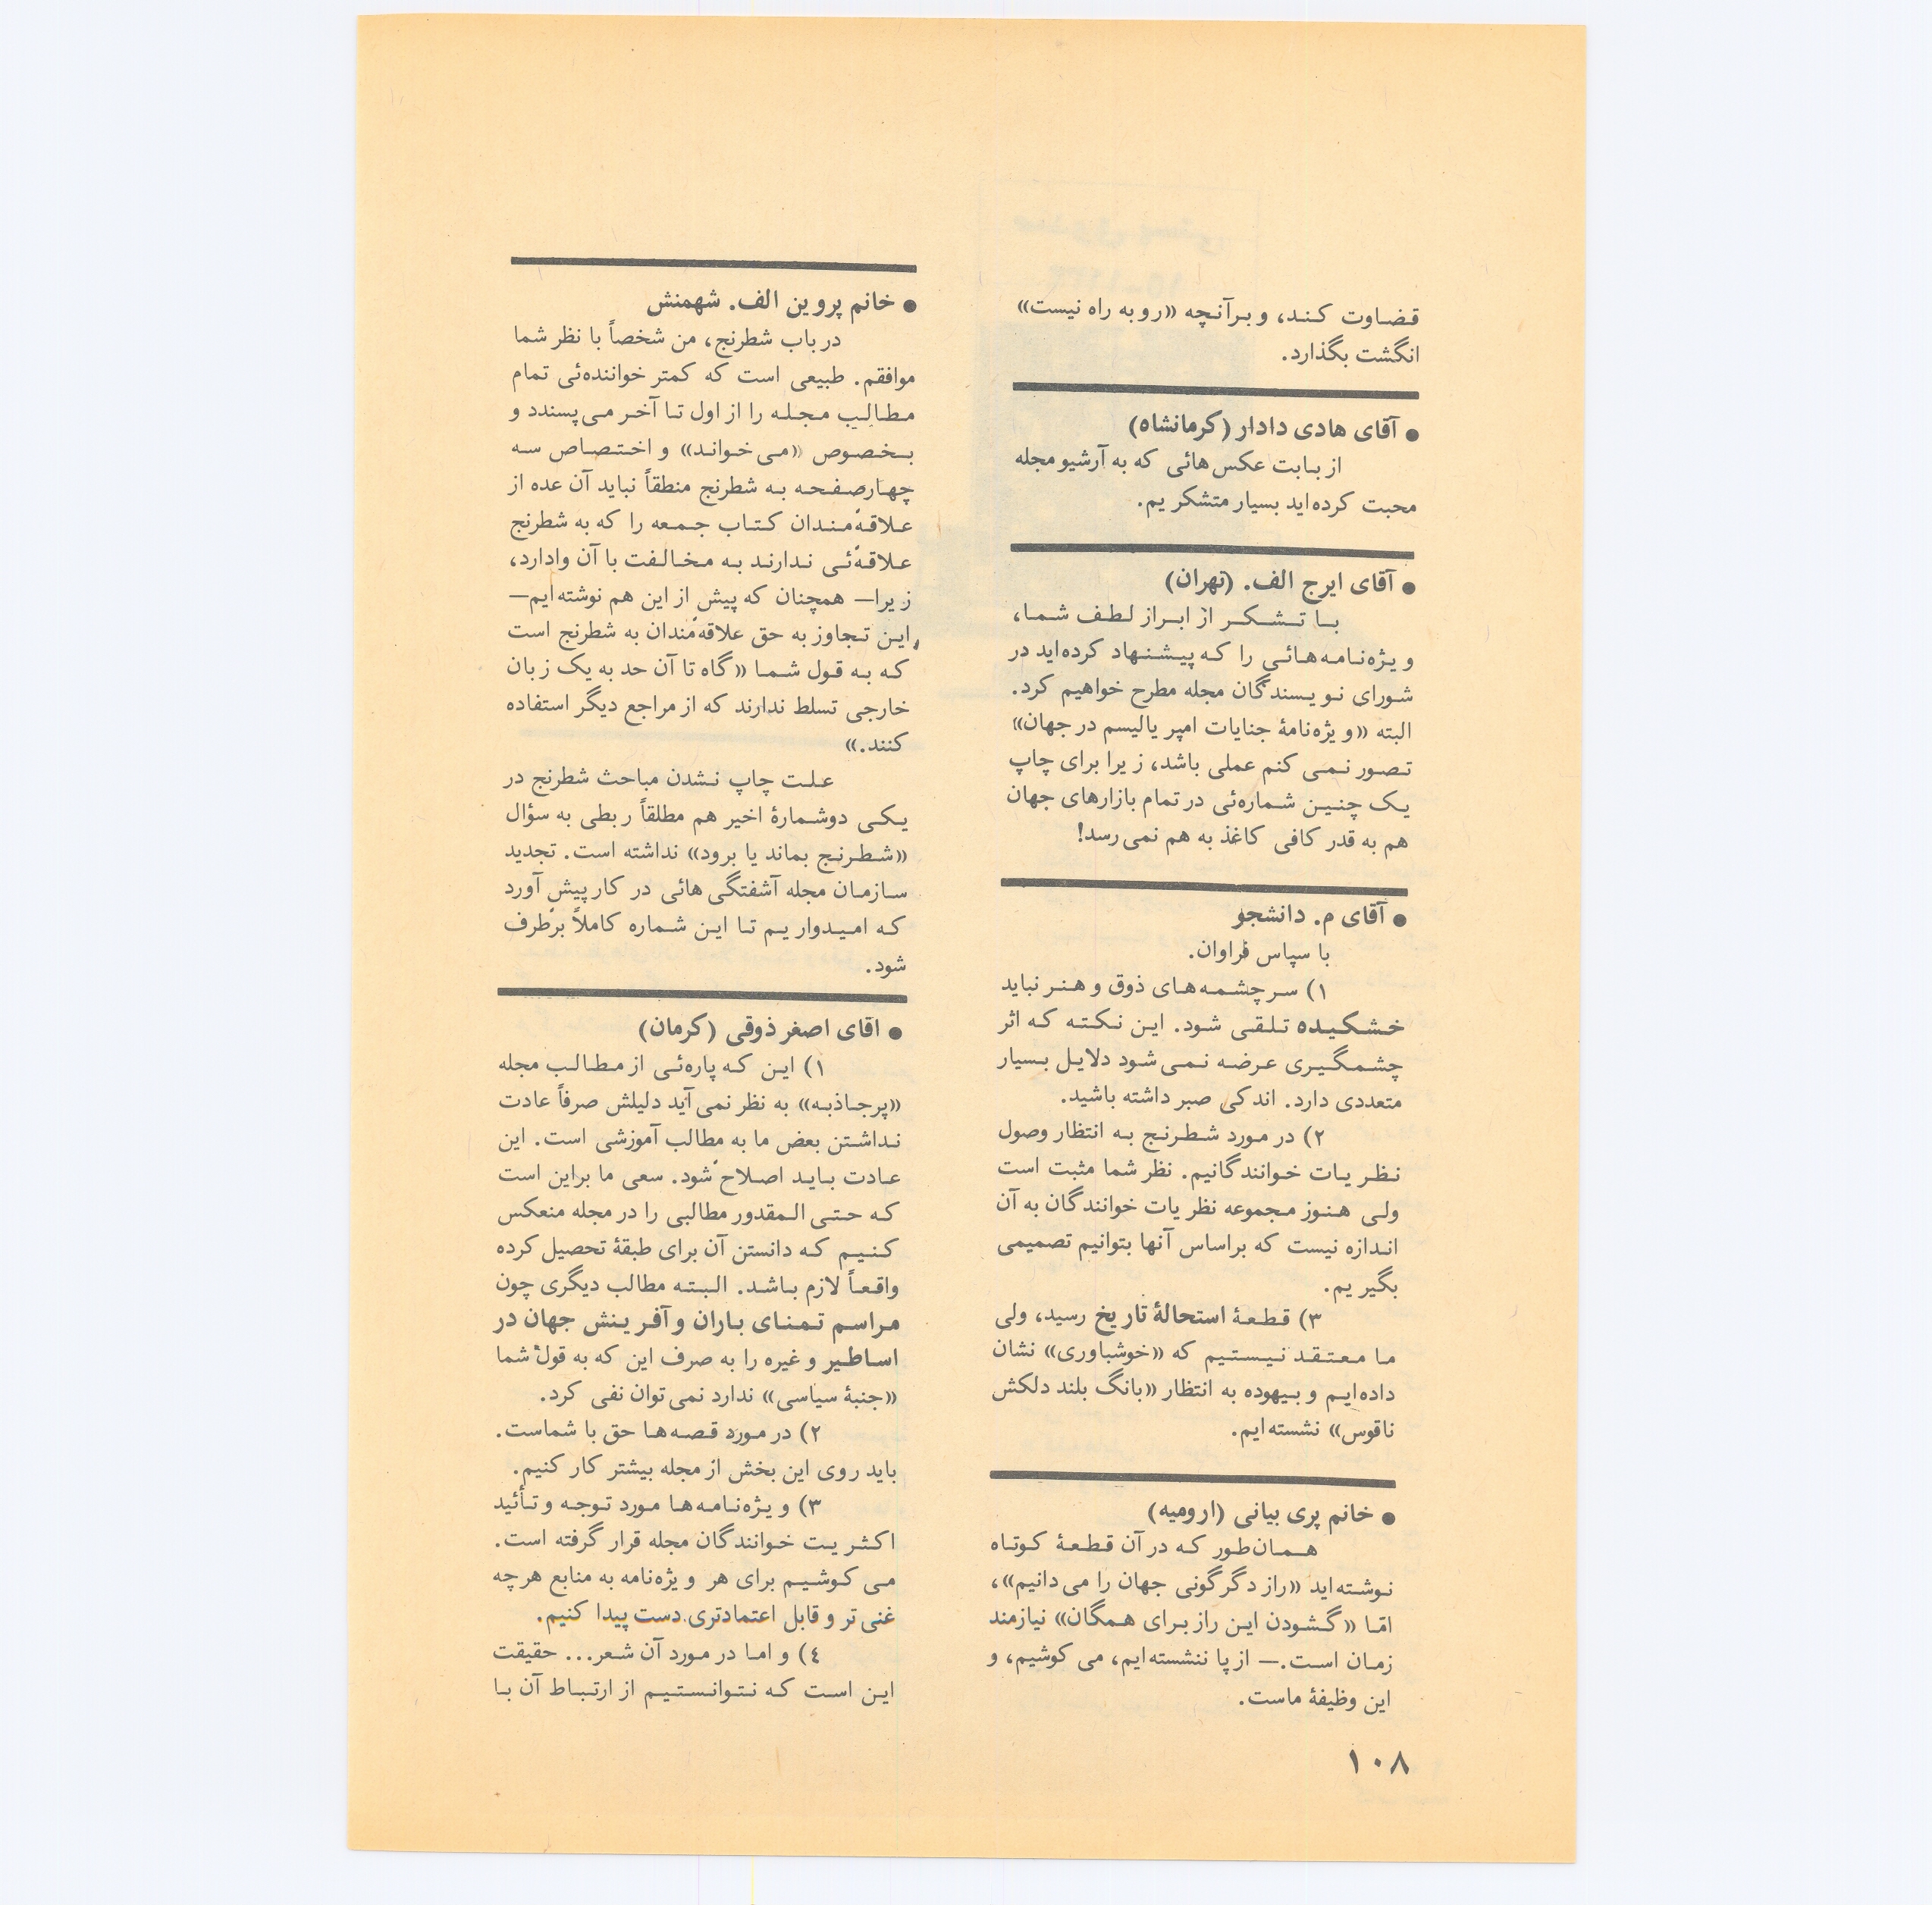 قضاوت کند، و برآنچه «رو به راه نیست»
انگشت بگذارد.
● آقای هادی دادار (کرمانشاه)
از بابت عکس‌هائی که به آرشیو مجله
محبت کرده‌اید بسیار متشکریم.
● آقای ایرج الف. (تهران)
با تشکر از ابراز لطف شما،
ویژه‌نامه‌هائی را که پیشنهاد کرده‌اید در
شورای نویسندگان مجله مطرح خواهیم کرد.
البته «ویژه‌نامهٔ جنایات امپریالیسم در جهان»
تصور نمی‌کنم عملی باشد، زیرا برای چاپ
یک چنین شماره‌ئی در تمام بازارهای جهان
هم به قدر کافی کاغذ به هم نمی‌رسد!
● آقای م. دانشجو
با سپاس فراوان.
۱) سرچشمه‌های ذوق و هنر نباید
خشکیده تلقی شود. این نکته که اثر
چشمگیری عرضه نمی‌شود دلایل بسیار
متعددی دارد. اندکی صبر داشته باشید.
۲) در مورد شطرنج به انتظار وصول
نظریات خوانندگانیم. نظر شما مثبت است
ولی هنوز مجموعه نظریات خوانندگان به آن
اندازه نیست که براساس آنها بتوانیم تصمیمی
بگیریم.
۳) قطعهٔ استحالهٔ تاریخ رسید، ولی
ما معتقد نیستیم که «خوشباوری» نشان
داده‌ایم و بیهوده به انتظار «بانگ بلند دلکش
ناقوس» نشسته‌ایم.
● خانم پری بیانی (ارومیه)
همان‌طور که در آن قطعهٔ کوتاه
نوشته‌اید «راز دگرگونی جهان را می‌دانیم»،
امّا «گشودن این راز برای همگان» نیازمند
زمان است.— از پا ننشسته‌ایم، می‌کوشیم، و
این وظیفهٔ ماست.
● خانم پروین الف. شهمنش
در باب شطرنج، من شخصاً با نظر شما
موافقم. طبیعی است که کمتر خواننده‌ئی تمام
مطالب مجله را از اول تا آخر می‌پسندد و
بخصوص «می‌خواند» و اختصاص سه
چهارصفحه به شطرنج منطقاً نباید آن عده از
علاقه‌مندان کتاب جمعه را که به شطرنج
علاقه‌ئی ندارند به مخالفت با آن وادارد،
زیرا— همچنان که پیش از این هم نوشته‌ایم—
این تجاوز به حق علاقه‌مندان به شطرنج است
که به قول شما «گاه تا آن حد به یک زبان
خارجی تسلط ندارند که از مراجع دیگر استفاده
کنند.»
علت چاپ نشدن مباحث شطرنج در
یکی دوشمارهٔ اخیر هم مطلقاً ربطی به سؤال
«شطرنج بماند یا برود» نداشته است. تجدید
سازمان مجله آشفتگی‌هائی در کار پیش آورد
که امیدواریم تا این شماره کاملاً برطرف
شود.
● اقای اصغر ذوقی (کرمان)
۱) این که پاره‌ئی از مطالب مجله
«پرجاذبه» به نظر نمی‌آید دلیلش صرفاً عادت
نداشتن بعض ما به مطالب آموزشی است. این
عادت باید اصلاح شود. سعی ما براین است
که حتی‌المقدور مطالبی را در مجله منعکس
کنیم که دانستن آن برای طبقهٔ تحصیل کرده
واقعاً لازم باشد. البته مطالب دیگری چون
مراسم تمنای باران و آفرینش جهان در
اساطیر و غیره را به صرف این که به قول شما
«جنبهٔ سیاسی» ندارد نمی‌توان نفی کرد.
۲) در مورد قصه‌ها حق با شماست.
باید روی این بخش از مجله بیشتر کار کنیم.
۳) ویژه‌نامه‌ها مورد توجه و تأئید
اکثریت خوانندگان مجله قرار گرفته است.
می‌کوشیم برای هر ویژه‌نامه به منابع هرچه
غنی‌تر و قابل اعتمادتری دست پیدا کنیم.
٤) و اما در مورد آن شعر... حقیقت
این است که نتوانستیم از ارتباط آن با
۱۰۸